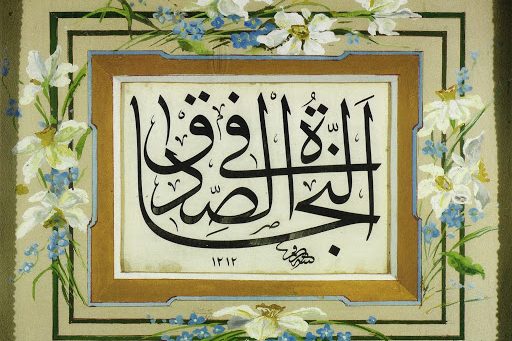 النّجاة في الصّدق
١٢١٢